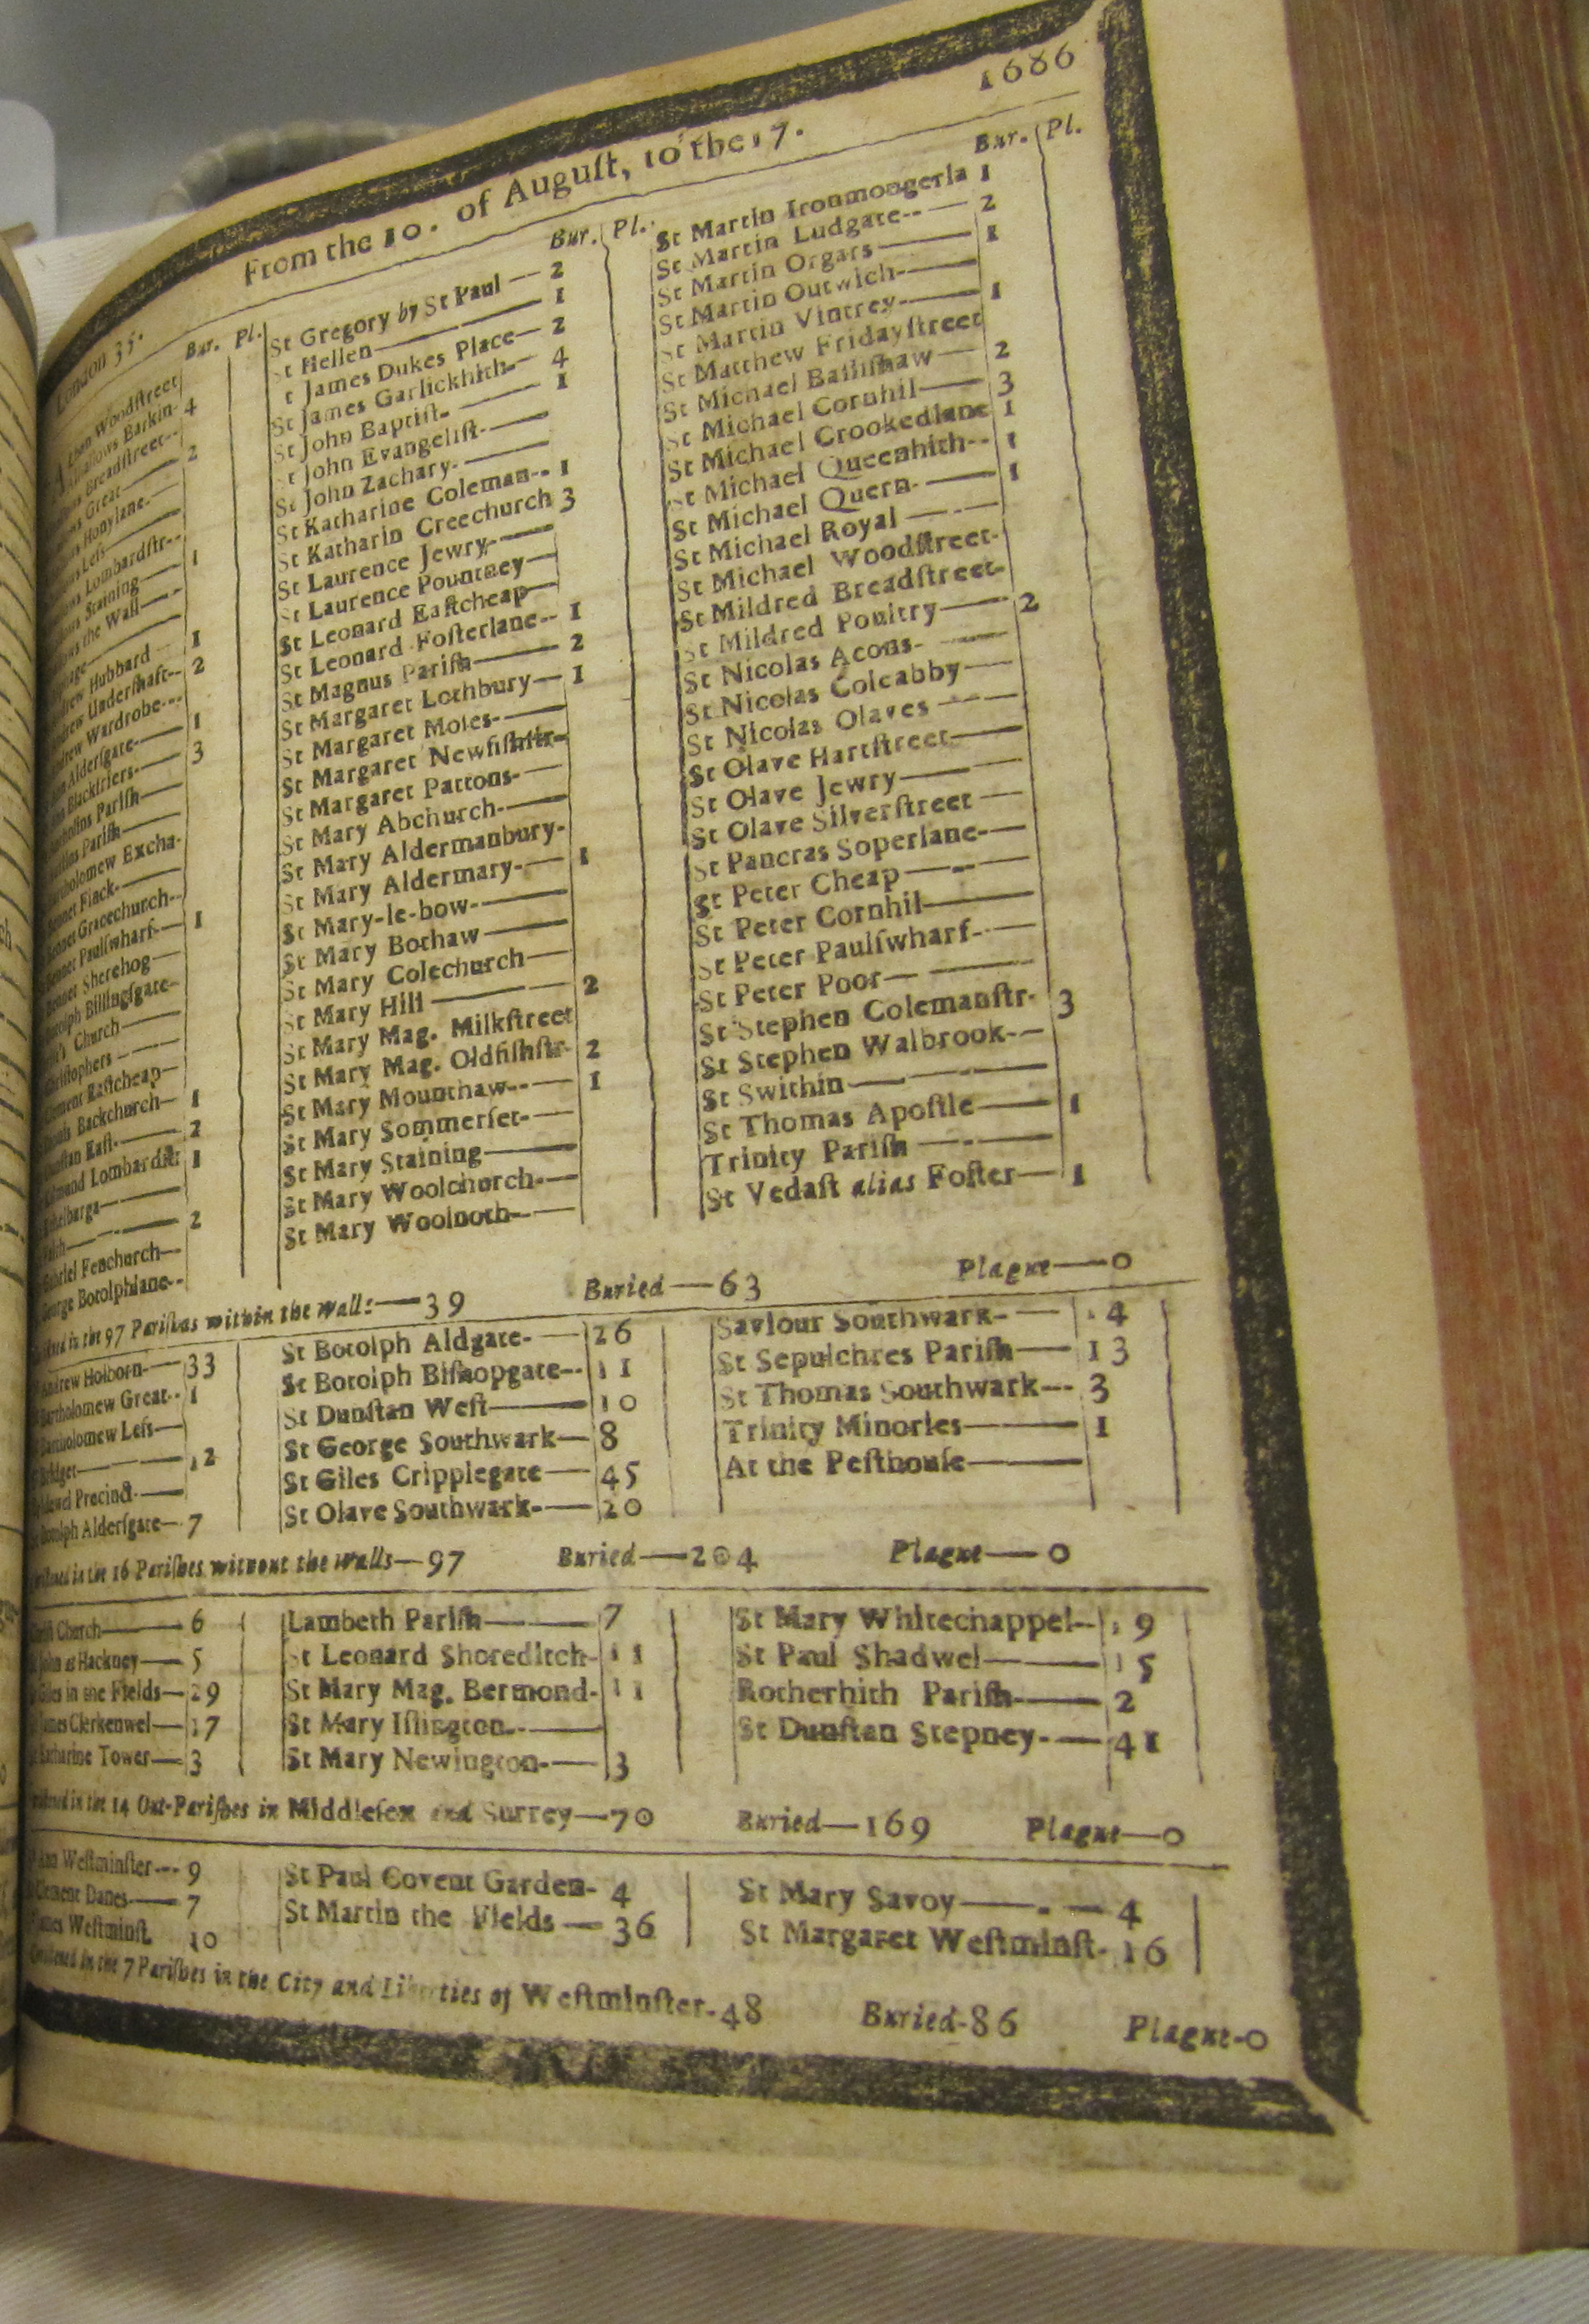 1686
London 35. From the 10. of August, to the 17.
Bur. Pl.
Woodstreet
Barkin- 4
Breadstreet--
Great— 2
Honylane-
Less—
Lombardstr--
Staining— 1
the Wall—
Hubbard— 1
Undershaft-- 2
Wardrobe---
Aldersgate-— 1
Blackfriers-— 3
Parish—
Parish—
Excha-
Finck-—
Gracechurch--
Paulswharf-— 1
Sherehog—
Billingsgate-
Church—
Eastcheap—
Backchurch— 1
East-— 2
Lombardstr 1
— 2
Fenchurch—
Botolphlane--
Bur. Pl.
St Gregory by St Paul— 2
St Hellen— 1
St James Dukes Place— 2
St James Garlickhith- 4
St John Baptist-— 1
St John Evangelist-—
St John Zachary-—
St Katharine Coleman-- 1
St Katharin Creechurch 3
St Laurence Jewry-—
St Laurence Pountney—
St Leonard Eastcheap—
St Leonard Fosterlane-- 1
St Magnus Parish— 2
St Margaret Lothbury— 1
St Margaret Moses-—
St Margaret Newfishstr-
St Margaret Pattons-—
St Mary Abchurch-—
St Mary Aldermanbury-
St Mary Aldermary-— 1
St Mary-le-bow-—
St Mary Bothaw—
St Mary Colechurch—
St Mary Hill— 2
St Mary Mag. Milkstreet
St Mary Mag. Oldfishstr- 2
St Mary Mounthaw--— 1
St Mary Sommerset-—
St Mary Staining—
St Mary Woolchurch-—
St Mary Woolnoth-—
Bur. Pl.
St Martin Ironmongerla 1
St Martin Ludgate--— 2
St Martin Orgars— 1
St Martin Outwich-—
St Martin Vintrey-— 1
St Matthew Fridaystreet
St Michael Bassishaw— 2
St Michael Cornhil— 3
St Michael Crookedlane 1
St Michael Queenhith-- 1
St Michael Quern-— 1
St Michael Royal—
St Michael Woodstreet-
St Mildred Breadstreet-
St Mildred Poultry— 2
St Nicolas Acons-—
St Nicolas Coleabby—
St Nicolas Olaves—
St Olave Hartstreet—
St Olave Jewry—
St Olave Silverstreet—
St Pancras Soperlane-—
St Peter Cheap—
St Peter Cornhil—
St Peter Paulswharf-—
St Peter Poor—
St Stephen Colemanstr- 3
St Stephen Walbrook-—
St Swithin—
St Thomas Apostle— 1
Trinity Parish—
St Vedast alias Foster— 1
in the 97 Parishes within the walls—39 Buried—63 Plague—0
Andrew Holborn— 33
Bartholomew Great-- 1
Bartholomew Less—
Bridget— 12
Bridewel Precinct-—
Botolph Aldersgate— 7
St Botolph Aldgate-— 26
St Botolph Bishopgate-- 11
St Dunstan West— 10
St George Southwark— 8
St Giles Cripplegate— 45
St Olave Southwark-— 20
Saviour Southwark-— 14
St Sepulchres Parish— 13
St Thomas Southwark-- 3
Trinity Minories— 1
At the Pesthouse—
in the 16 Parishes without the Walls—97 Buried—204 Plague—0
Church— 6
John at Hackney— 5
Giles in the Fields— 29
James Clerkenwel— 17
Katharine Tower— 3
Lambeth Parish— 7
St Leonard Shoreditch- 11
St Mary Mag. Bermond- 11
St Mary Islington-—
St Mary Newington-— 3
St Mary Whitechappel-- 19
St Paul Shadwel— 15
Rotherhith Parish-— 2
St Dunstan Stepney-— 41
in the 14 Out-Parishes in Middlesex and Surrey—70 Buried—169 Plague—0
Ann Westminster--- 9
Clement Danes— 7
James Westminst. 10
St Paul Covent Garden- 4
St Martin the Fields— 36
St Mary Savoy— 4
St Margaret Westminst- 16
in the 7 Parishes in the City and Liberties of Westminster-48 Buried-86 Plague-0